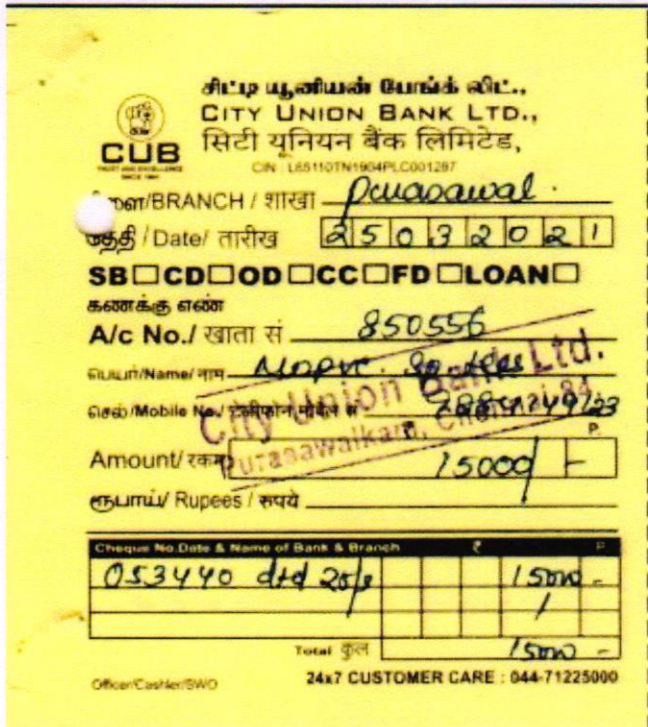 சிட்டி யூனியன் பேங்க் லிட்.,
CITY UNION BANK LTD.,
सिटी यूनियन बैंक लिमिटेड,
CUB
TRUST AND EXCELLENCE
SINCE 1904
CIN : L65110TN1904PLC001287
/BRANCH / शाखा
தேதி / Date/ तारीख 25032021
SB CD OD CC FD LOAN
கணக்கு எண்
A/c No./ खाता सं 850556
பெயர்/Name/ नाम
செல்/Mobile No./ टेलीफोन मोबैल सं
City Union Bank Ltd.
Purasawalkam, Chennai-84
P.
Amount/ रकम 15000/-
ரூபாய்/ Rupees / रुपये
Cheque No.Date & Name of Bank & Branch ₹ P.
053440 dtd 25/3 15000 -
Total कुल 15000 -
Officer/Cashier/SWO 24x7 CUSTOMER CARE : 044-71225000